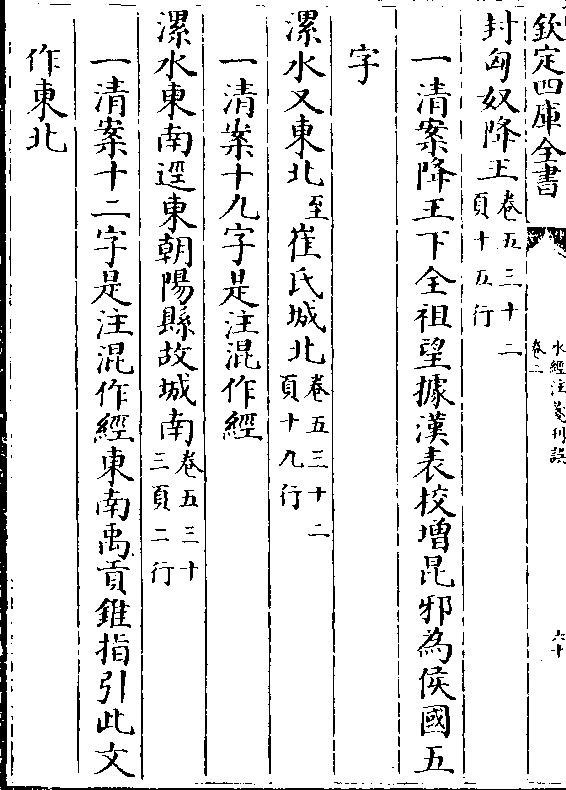 欽定四庫全書
水經注箋刋誤
卷二
六十
封匈奴降王卷五三十二頁十五行
一清案降王下全祖望據漢表校增昆邪為侯國五
字
漯水又東北至崔氏城北卷五三十二頁十九行
一清案十九字是注混作經
漯水東南逕東朝陽縣故城南卷五三十三頁二行
一清案十二字是注混作經東南禹貢錐指引此文
作東北